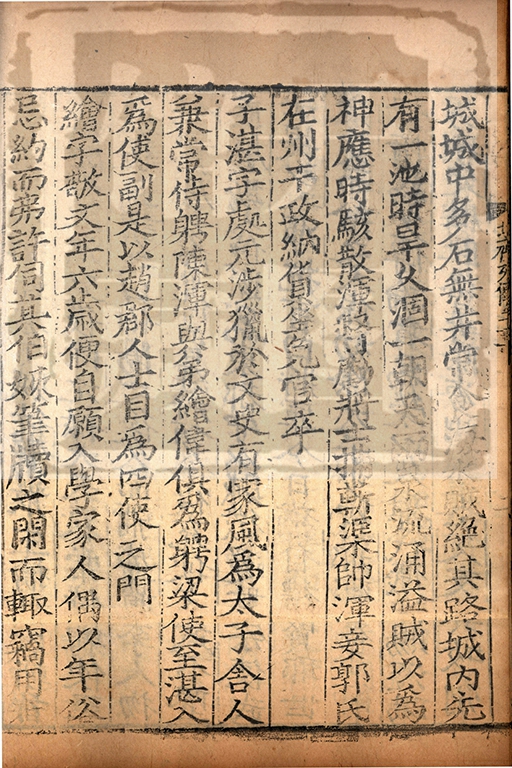 城城中多石無井常食海水賊絕其路城內先
有一池時旱久涸一朝天雨泉流涌溢賊以爲
神應時駭散渾督勵將士捕斬渠帥渾妾郭氏
在州干政納貨坐免官卒
子湛字處元涉獵於文史有家風爲太子舍人
兼常侍聘陳渾與弟繪偉俱爲聘梁使至湛又
爲使副是以趙郡人士目爲四使之門
繪字敬文年六歲便自願入學家人偶以年俗
忌約而弗許伺其伯姊筆牘之閑而輙竊用